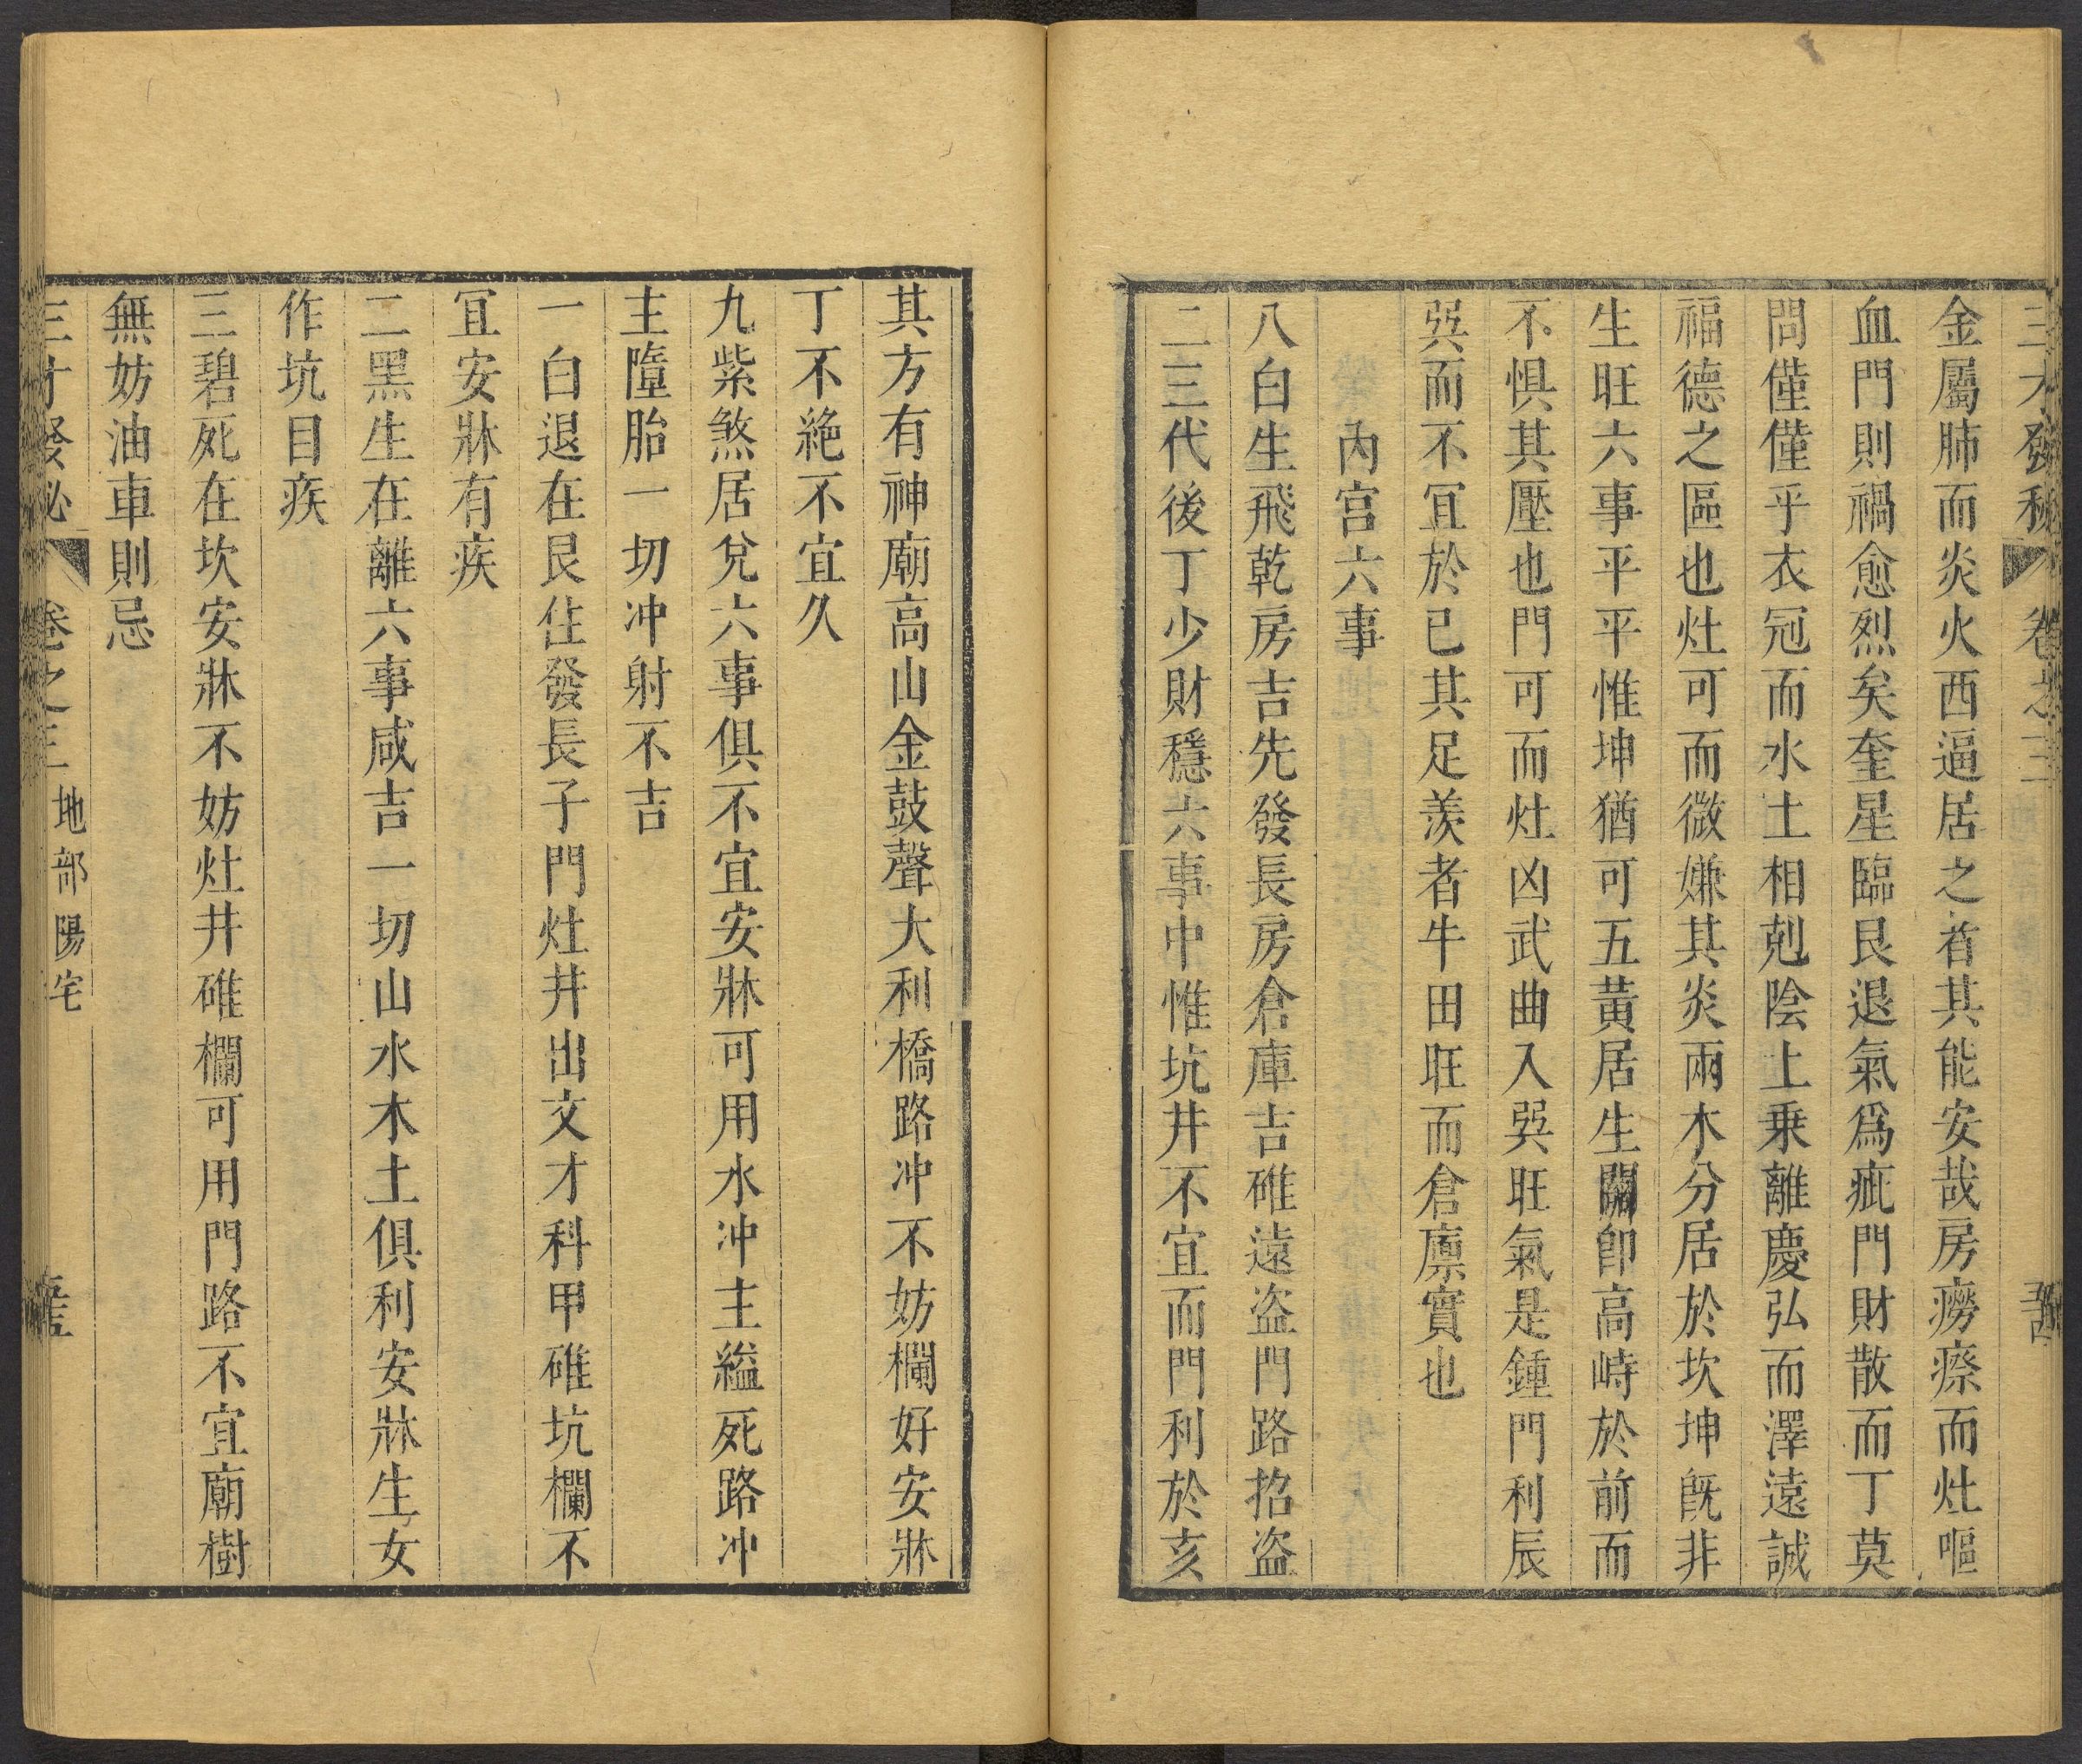 三才發秘 卷之三
金屬肺而炎火西逼居之者其能安哉房癆瘵而灶嘔
血門則禍愈烈矣奎星臨艮退氣爲疵門財散而丁莫
問僅僅乎衣冠而水土相剋陰上乗離慶弘而澤遠誠
福德之區也灶可而微嫌其炎兩木分居於坎坤旣非
生旺六事平平惟坤猶可五黃居生關卽高峙於前而
不惧其壓也門可而灶凶武曲入巽旺氣是鍾門利辰
巽而不宜於已其足羨者牛田旺而倉廪實也
內宫六事
八白生飛乾房吉先發長房倉庫吉碓遠盗門路招盗
二三代後丁少財穩六事中惟坑井不宜而門利於亥
其方有神廟高山金鼓聲大利橋路冲不妨欄好安牀
丁不絶不宜久
九紫煞居兌六事俱不宜安牀可用水冲主縊死路冲
主墮胎一切冲射不吉
一白退在艮住發長子門灶井出文才科甲碓坑欄不
宜安牀有疾
二黑生在離六事咸吉一切山水木土俱利安牀生女
作坑目疾
三碧死在坎安牀不妨灶井碓欄可用門路不宜廟樹
無妨油車則忌
三才發秘 卷之三 地部陽宅